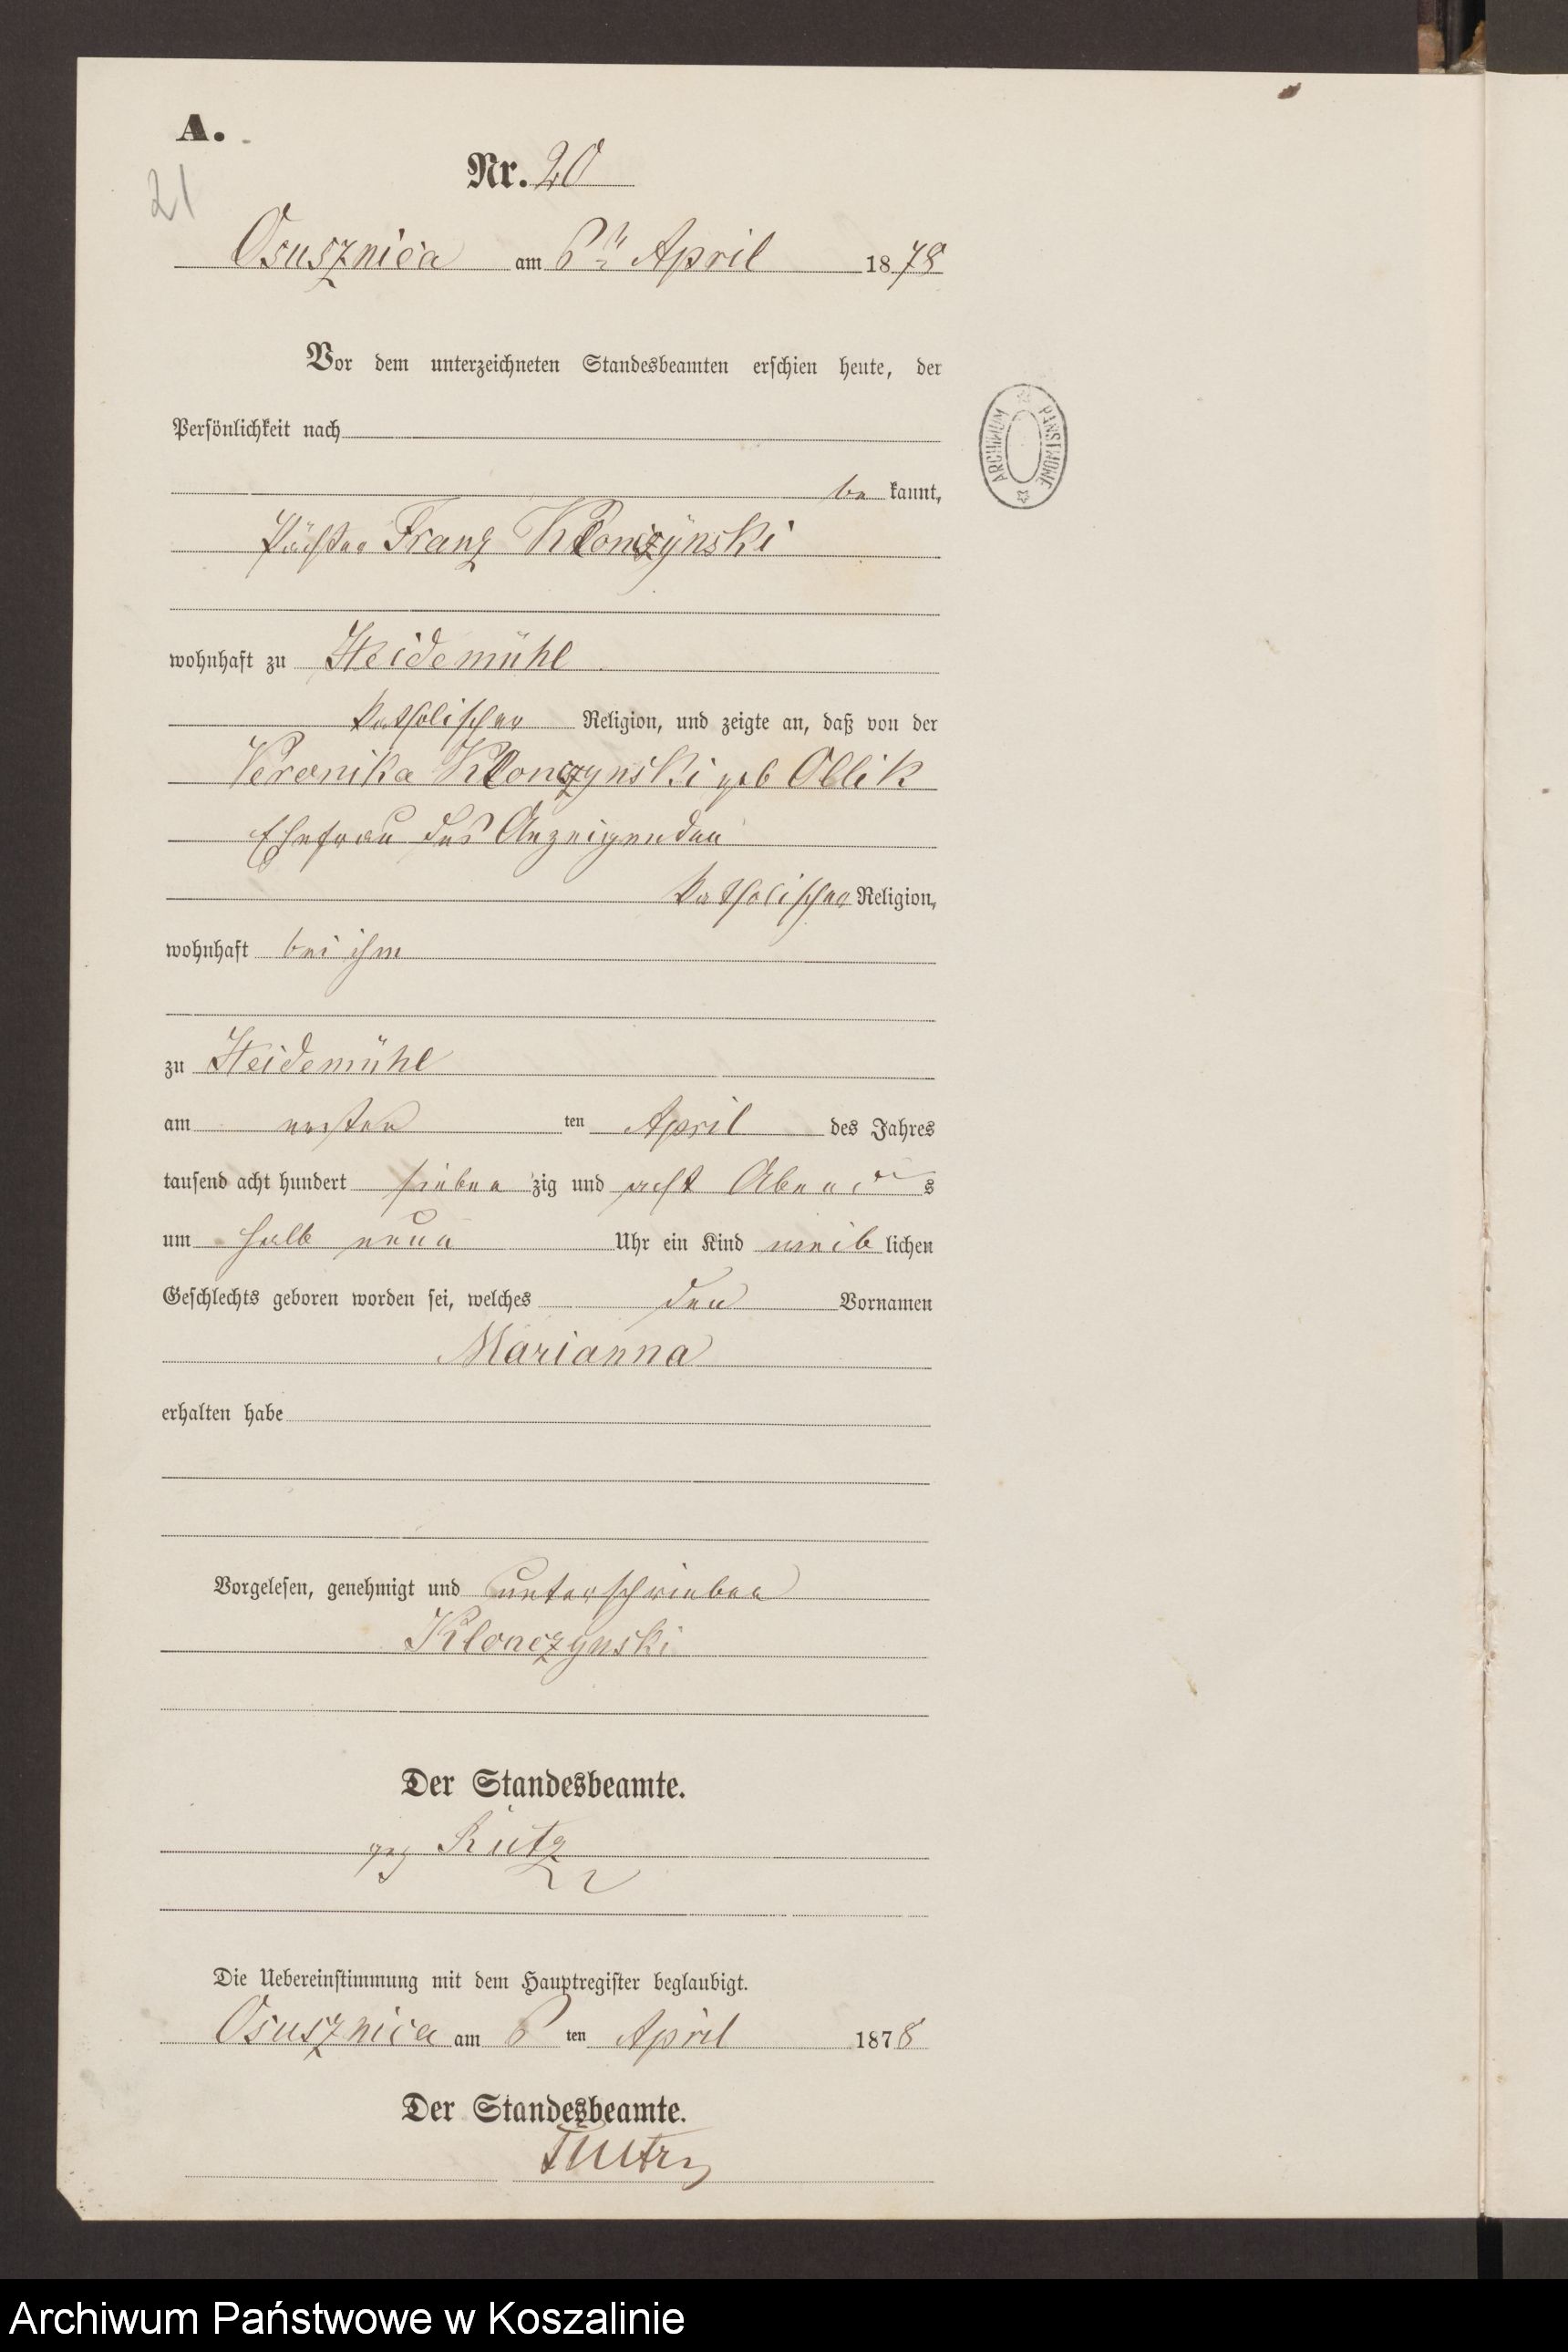 A.
21
Nr. 20
Osusznica am 6ten April 1878
Vor dem unterzeichneten Standesbeamten erschien heute, der
Persönlichkeit nach
be kannt,
Pächter Franz Klonczynski
wohnhaft zu Heidemühl
katholischer Religion, und zeigte an, daß von der
Veronika Klonczynski geb Ollik
Ehefrau des Anzeigenden
katholischer Religion,
wohnhaft bei ihm
zu Heidemühl
am ersten ten April des Jahres
tausend acht hundert sieben zig und acht Abend s
um halb neun Uhr ein Kind weib lichen
Geschlechts geboren worden sei, welches den Vornamen
Marianna
erhalten habe
Vorgelesen, genehmigt und unterschrieben
Klonczynski
Der Standesbeamte.
gez
Die Uebereinstimmung mit dem Hauptregister beglaubigt.
Osusznica am 6 ten April 1878
Der Standesbeamte.
ARCHIWUM PAŃSTWOWE
Archiwum Państwowe w Koszalinie